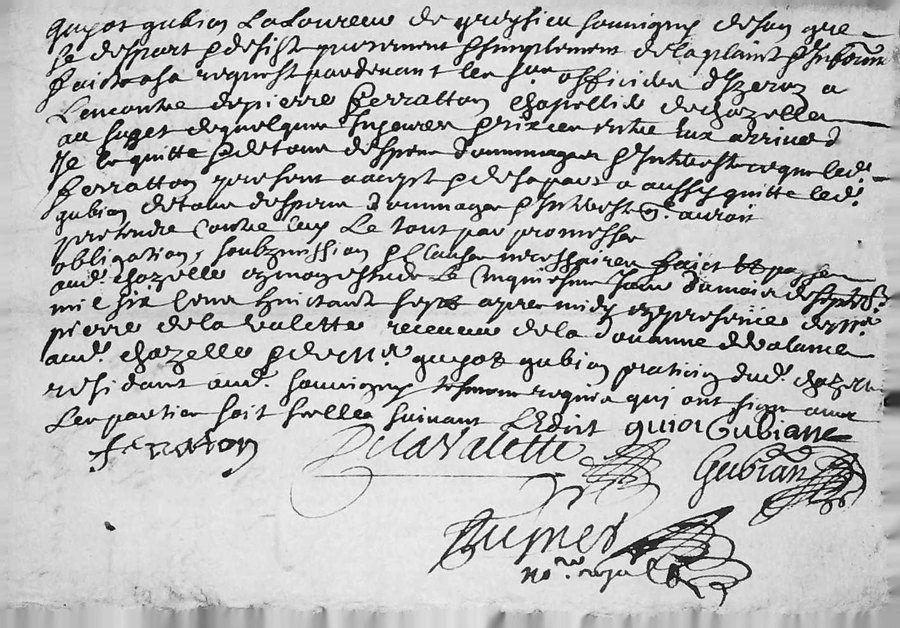 guyot gubian laboureur de greysieu souvigny de son gre
se despart & desiste purement & simplement de la plainte & Inform
faicte a sa requeste pardevant les srs officiers d'Yzeron a
Lencontre de pierre ferratton de chazelle
au suget de quelques Injeures & rixes entre eux arrivees
Il le quitte de tous despens dommages & Interests ce que led.
ferratton present accepte & de sa part a aussy quitte led.
gubian de tous despens dommages & Interests auroit
pretendre contre luy Le tout par promesse
obligation, soubzmission & Clauses necessaires faict et passe
aud. chazelle en mon estude Le Cinquiesme Jour du mois de septbre
mil six Cens huictante sept apres midy en presence de
pierre de la valette receveur de la douanne de valance
aud. chazelle & de guyot gubian praticien dud. chazelle
residant aud. souvigny tesmoins requis qui ont signe avec
Les parties soit selle suivant L'Edict guiot Gubian
ferraton
DelaValette
Gubian
no.re royal